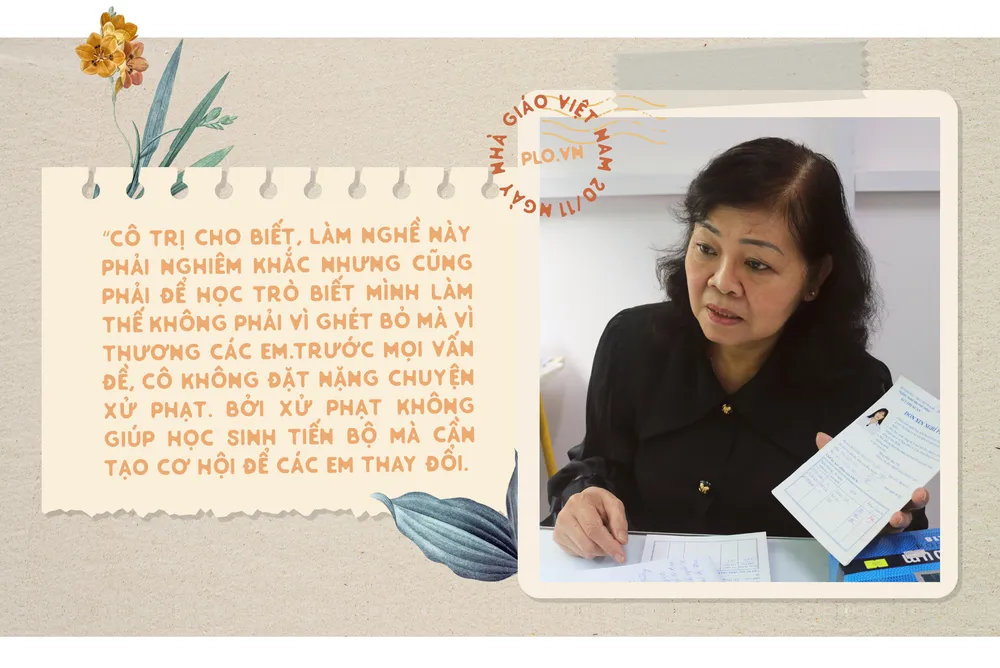 NGÀY NHÀ GIÁO VIỆT NAM 20/11
PLO.VN
“CÔ TRỊ CHO BIẾT, LÀM NGHỀ NÀY
PHẢI NGHIÊM KHẮC NHƯNG CŨNG
PHẢI ĐỂ HỌC TRÒ BIẾT MÌNH LÀM
THẾ KHÔNG PHẢI VÌ GHÉT BỎ MÀ VÌ
THƯƠNG CÁC EM.TRƯỚC MỌI VẤN
ĐỀ, CÔ KHÔNG ĐẶT NẶNG CHUYỆN
XỬ PHẠT. BỞI XỬ PHẠT KHÔNG
GIÚP HỌC SINH TIẾN BỘ MÀ CẦN
TẠO CƠ HỘI ĐỂ CÁC EM THAY ĐỔI.
ĐƠN XIN NGHỈ